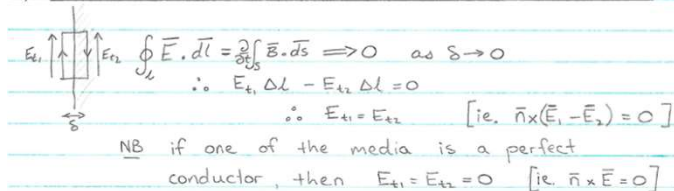 Et₁ Et₂ ∮ₗ Ē.d̄l = ∂/∂t ∫ₛ B̄.d̄s ⟹ 0 as δ→0
∴ Et₁ Δl - Et₂ Δl = 0
∴ Et₁ = Et₂ [ie, n̄x(Ē₁ - Ē₂) = 0]
δ
NB if one of the media is a perfect
conductor, then Et₁ = Et₂ = 0 [ie. n̄ x Ē = 0]